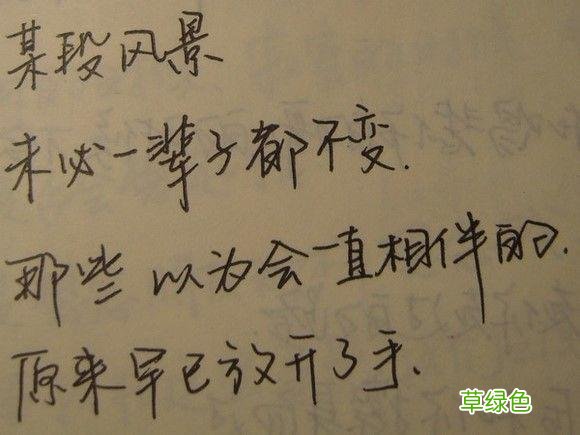 某段风景
未必一辈子都不变.
那些以为会一直相伴的.
原来早已放开了手.
草绿色